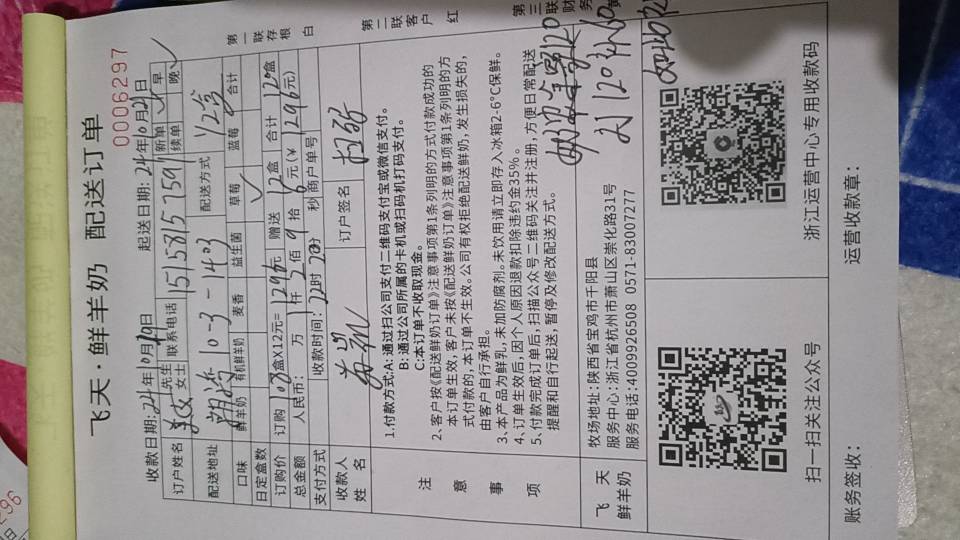 飞天·鲜羊奶 配送订单
0006297
收款日期: 24年10月19日 起送日期: 24年10月21日
订户姓名 先生 女士 联系电话 15158157591 新单 续单 早 晚
配送地址 10-3-1403 配送方式 1/2
口味 鲜羊奶 有机鲜羊奶 麦香 益生菌 草莓 蓝莓 合计
日定盒数
订购价 订购 108盒X12元=1296元 赠送 12盒 合计 120盒
总金额 人民币: 万 1仟 2佰 9拾 6元(¥ 1296元)
支付方式 收款时间: 22时 20分 秒 商户单号
收款人姓名 订户签名
第一联 存根 白
第二联 客户 红
第三联 财务 黄
注意事项
1.付款方式:A:通过扫公司支付二维码支付宝或微信支付。
B:通过公司所属的卡机或扫码机打码支付。
C:本订单不收取现金。
2、客户按《配送鲜奶订单》注意事项第1条列明的方式付款成功的
本订单生效,客户未按《配送鲜奶订单》注意事项第1条列明的方
式付款的,本订单不生效。公司有权拒绝配送鲜奶,发生损失的,
由客户自行承担。
3、本产品为鲜乳,未加防腐剂。未饮用请立即存入冰箱2-6°C保鲜。
4、订单生效后,因个人原因退款扣除违约金35%。
5、付款完成订单后,扫描公众号二维码关注并注册,方便日常配送
提醒和自行起送,暂停及修改配送方式。
飞天
鲜羊奶
牧场地址:陕西省宝鸡市千阳县
服务中心:浙江省杭州市萧山区崇化路31号
服务电话:4009926508 0571-83007277
扫一扫关注公众号
浙江运营中心专用收款码
账务签收:
运营收款章: